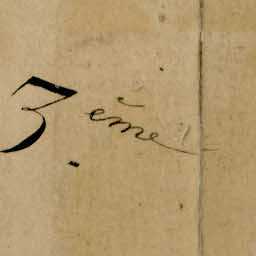 3. ème